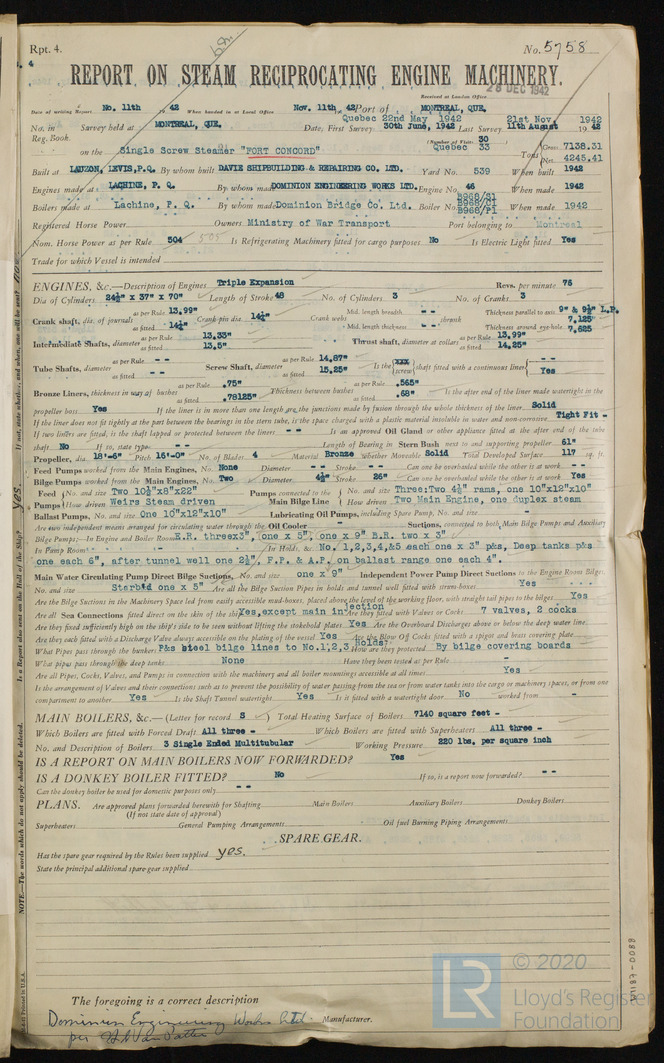 Rpt. 4.
No. 5758
REPORT ON STEAM RECIPROCATING ENGINE MACHINERY.
28 DEC 1942
Received at London Office
Date of writing Report No. 11th 19 42 When handed in at Local Office Nov. 11th, 42 Port of MONTREAL, QUE.
Quebec 22nd May 1942 21st Nov. 1942
No. in Survey held at MONTREAL, QUE. Date, First Survey 30th June, 1942 Last Survey 11th August 19 42
Reg. Book. (Number of Visits 30
Quebec 33
on the Single Screw Steamer "FORT CONCORD" Tons Gross 7138.31
Net 4245.41
Built at LAUZON, LEVIS, P.Q. By whom built DAVIE SHIPBUILDING & REPAIRING CO. LTD. Yard No. 539 When built 1942
Engines made at LACHINE, P. Q. By whom made DOMINION ENGINEERING WORKS LTD. Engine No. 46 When made 1942
Boilers made at Lachine, P. Q. By whom made Dominion Bridge Co. Ltd. Boiler No. B968/S1 B968/C1 B968/P1 When made 1942
Registered Horse Power Owners Ministry of War Transport Port belonging to Montreal
Nom. Horse Power as per Rule 504 505 Is Refrigerating Machinery fitted for cargo purposes No Is Electric Light fitted Yes
Trade for which Vessel is intended
ENGINES, &c.—Description of Engines Triple Expansion Revs. per minute 76
Dia of Cylinders 24½" x 37" x 70" Length of Stroke 48 No. of Cylinders 3 No. of Cranks 3
Crank shaft, dia. of journals as per Rule 13.99" as fitted 14¼" Crank pin dia. 14¼" Crank webs Mid. length breadth -- Mid. length thickness -- shrunk Thickness parallel to axis 9" & 9½" L.P. 7.125" Thickness around eye-hole 7.625
Intermediate Shafts, diameter as per Rule 13.33" as fitted 13.5" Thrust shaft, diameter at collars as per Rule 13.99" as fitted 14.25"
Tube Shafts, diameter as per Rule -- as fitted -- Screw Shaft, diameter as per Rule 14.87" as fitted 15.25" Is the screw shaft fitted with a continuous liner -- Yes
Bronze Liners, thickness in way of bushes as per Rule .75" as fitted .78125" Thickness between bushes as per Rule .565" as fitted .68" Is the after end of the liner made watertight in the
propeller boss Yes If the liner is in more than one length are the junctions made by fusion through the whole thickness of the liner Solid
If the liner does not fit tightly at the part between the bearings in the stern tube, is the space charged with a plastic material insoluble in water and non-corrosive Tight Fit -
If two liners are fitted, is the shaft lapped or protected between the liners -- Is an approved Oil Gland or other appliance fitted at the after end of the tube
shaft No If so, state type -- Length of Bearing in Stern Bush next to and supporting propeller 61"
Propeller, dia. 18'-6" Pitch 16'-0" No. of Blades 4 Material Bronze whether Moveable Solid Total Developed Surface 117 sq. ft.
Feed Pumps worked from the Main Engines, No. None Diameter -- Stroke -- Can one be overhauled while the other is at work --
Bilge Pumps worked from the Main Engines, No. Two Diameter 4½" Stroke 26" Can one be overhauled while the other is at work Yes
Feed Pumps No. and size Two 10½"x8"x22" Pumps connected to the Main Bilge Line No. and size Three: Two 4½" rams, one 10"x12"x10"
How driven Weirs Steam driven How driven Two Main Engine, one duplex steam
Ballast Pumps, No. and size One 10"x12"x10" Lubricating Oil Pumps, including Spare Pump, No. and size -
Are two independent means arranged for circulating water through the Oil Cooler - Suctions, connected to both Main Bilge Pumps and Auxiliary
Bilge Pumps:—In Engine and Boiler Room E.R. three x3", one x 5", one x 9" B.R. two x 3"
In Pump Room In Holds, &c. No. 1,2,3,4,&5 each one x 3" p&s, Deep tanks p&s
one each 6", after tunnel well one 2½", F.P. & A.P. on ballast range one each 4".
Main Water Circulating Pump Direct Bilge Suctions, No. and size one x 9" Independent Power Pump Direct Suctions to the Engine Room Bilges,
No. and size Starb'd one x 5" Are all the Bilge Suction Pipes in holds and tunnel well fitted with strum boxes Yes
Are the Bilge Suctions in the Machinery Space led from easily accessible mud-boxes, placed above the level of the working floor, with straight tail pipes to the bilges Yes
Are all Sea Connections fitted direct on the skin of the ship Yes, except main injection Are they fitted with Valves or Cocks 7 valves, 2 cocks
Are they fixed sufficiently high on the ship's side to be seen without lifting the stokehold plates Yes Are the Overboard Discharges above or below the deep water line.
Are they each fitted with a Discharge Valve always accessible on the plating of the vessel Yes Are the Blow Off Cocks fitted with a spigot and brass covering plate
What Pipes pass through the bunkers P&s steel bilge lines to No.1,2,3 Holds How are they protected By bilge covering boards
What pipes pass through the deep tanks None Have they been tested as per Rule -
Are all Pipes, Cocks, Valves, and Pumps in connection with the machinery and all boiler mountings accessible at all times Yes
Is the arrangement of Valves and their connections such as to prevent the possibility of water passing from the sea or from water tanks into the cargo or machinery spaces, or from one
compartment to another Yes Is the Shaft Tunnel watertight Yes Is it fitted with a watertight door No worked from -
MAIN BOILERS, &c.—(Letter for record S) Total Heating Surface of Boilers 7140 square feet -
Which Boilers are fitted with Forced Draft All three - Which Boilers are fitted with Superheaters All three -
No. and Description of Boilers 3 Single Ended Multitubular Working Pressure 220 lbs. per square inch
IS A REPORT ON MAIN BOILERS NOW FORWARDED? Yes
IS A DONKEY BOILER FITTED? No If so, is a report now forwarded? --
Can the donkey boiler be used for domestic purposes only --
PLANS. Are approved plans forwarded herewith for Shafting Main Boilers Auxiliary Boilers Donkey Boilers
(If not state date of approval)
Superheaters General Pumping Arrangements Oil fuel Burning Piping Arrangements
SPARE GEAR.
Has the spare gear required by the Rules been supplied yes.
State the principal additional spare gear supplied
The foregoing is a correct description
Dominion Engineering Works Ltd. Manufacturer.
per
NOTE.—The words which do not apply should be deleted.
Is a Report also sent on the Hull of the Ship? yes.
If not state whether, and when, one will be sent?
© 2020
LR
Lloyd's Register
Foundation